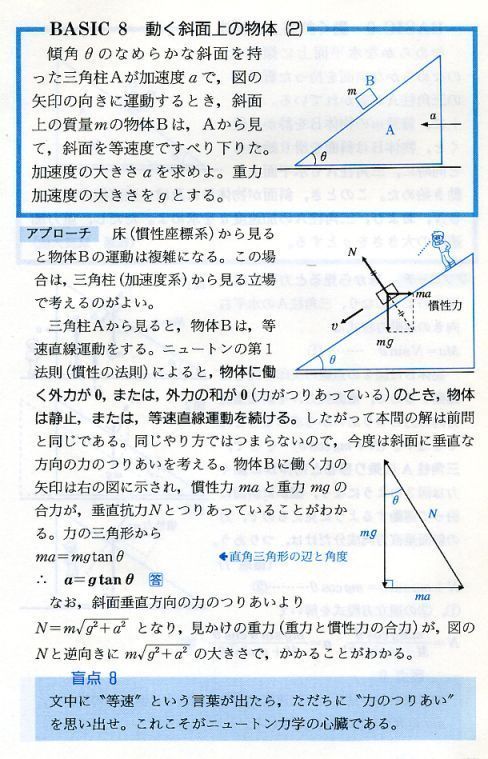 BASIC 8 動く斜面上の物体 (2)
傾角 θ のなめらかな斜面を持
った三角柱Aが加速度 a で，図の
矢印の向きに運動するとき，斜面
上の質量mの物体Bは，Aから見
て，斜面を等速度ですべり下りた。
加速度の大きさ a を求めよ。重力
加速度の大きさを g とする。
m
B
A
a
θ
アプローチ 床（慣性座標系）から見る
と物体Bの運動は複雑になる。この場
合は，三角柱（加速度系）から見る立場
で考えるのがよい。
三角柱Aから見ると，物体Bは，等
速直線運動をする。ニュートンの第1
法則（慣性の法則）によると，物体に働
く外力が 0，または，外力の和が 0（力がつりあっている）のとき，物体
は静止，または，等速直線運動を続ける。したがって本問の解は前問
と同じである。同じやり方ではつまらないので，今度は斜面に垂直な
方向の力のつりあいを考える。物体Bに働く力の
矢印は右の図に示され，慣性力 ma と重力 mg の
合力が，垂直抗力Nとつりあっていることがわか
る。力の三角形から
ma=mg tan θ ←直角三角形の辺と角度
∴ a=g tan θ 答
なお，斜面垂直方向の力のつりあいより
N=m√g²+a² となり，見かけの重力（重力と慣性力の合力）が，図の
Nと逆向きに m√g²+a² の大きさで，かかることがわかる。
N
ma
慣性力
v
mg
θ
θ
N
mg
ma
盲点 8
文中に “等速” という言葉が出たら，ただちに “力のつりあい”
を思い出せ。これこそがニュートン力学の心臓である。